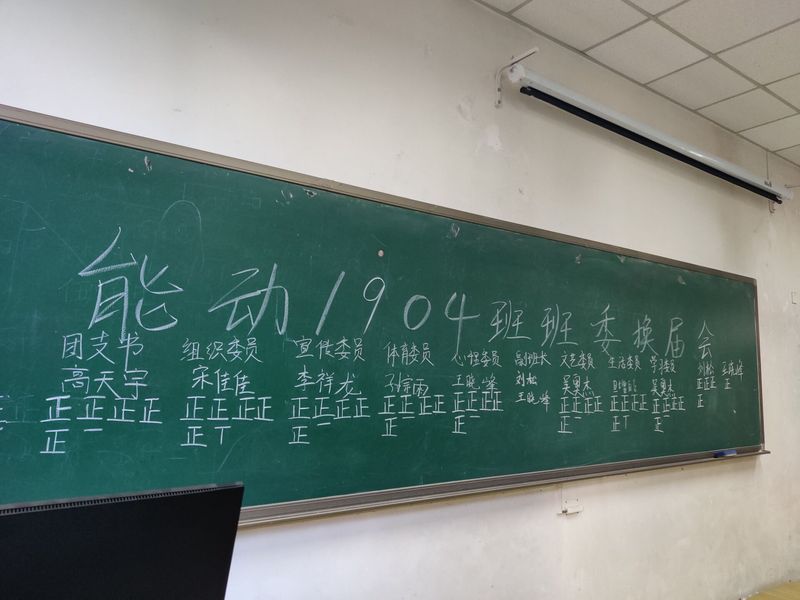 能动1904班班委换届会
团支书 组织委员 宣传委员 体育委员 心理委员 副班长 文艺委员 生活委员 学习委员 刘松 王晓峰
高天宇 宋佳佳 李祥龙 王晓峰 刘松 吴奥杰 吴奥杰 正正正 正
正正正正 正正正正 正正正正 正正正正 正正正正 王晓峰 正正正正 正正正正 正正正正 正
正一 正丅 正一 正一 正一 正一 正丅 正一